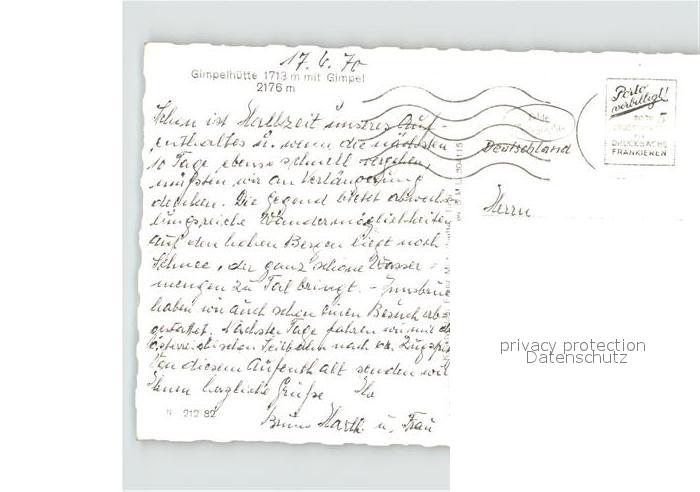 17.6.70
Gimpelhütte 1713 m mit Gimpel
2176 m
Schon ist Halbzeit unseres Auf-
enthaltes u. wenn die nächsten
10 Tage ebenso schnell vergehen,
müssten wir an Verlängerung
denken. Die Gegend bietet abwechs-
lungsreiche Wandermöglichkeiten
auf den hohen Bergen liegt noch
Schnee, der ganz schöne Wasser-
mengen zu Tal bringt. - Innsbruck
haben wir auch schon einen Besuch ab-
gestattet. Nächster Tage fahren wir mit
österreichischen Seilbahn nach der Zugspitze
Von diesem Aufenthalt senden wir
Ihnen herzliche Grüße Ihr
Bruno u. Frau
212 82
Deutschland
Herrn
Porto
verbilligt!
DRUCKSACHE
FRANKIEREN
privacy protection
Datenschutz